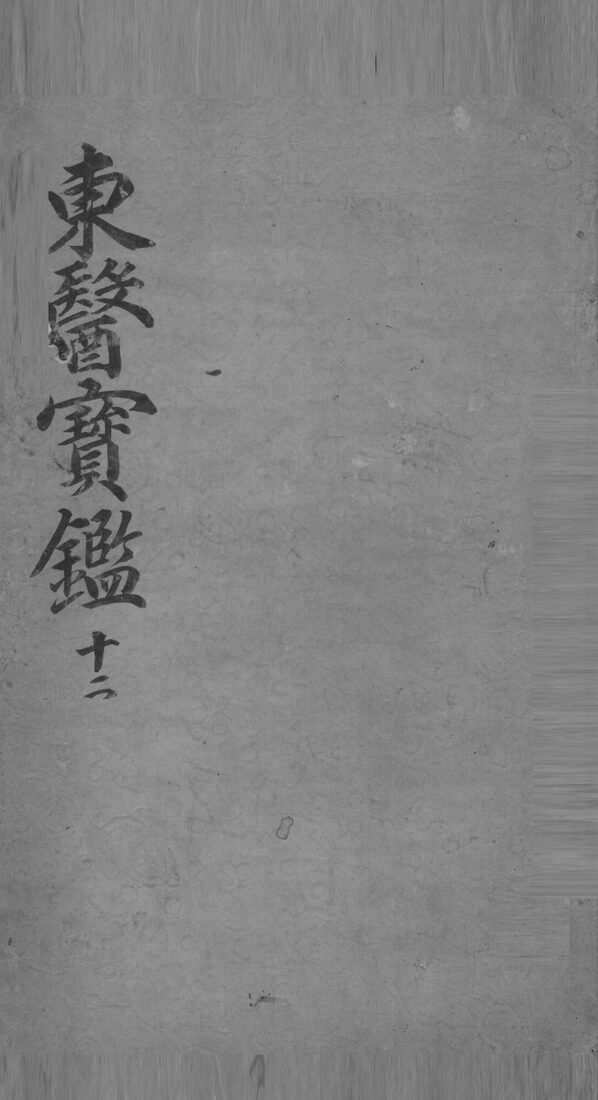 東醫寶鑑 十二